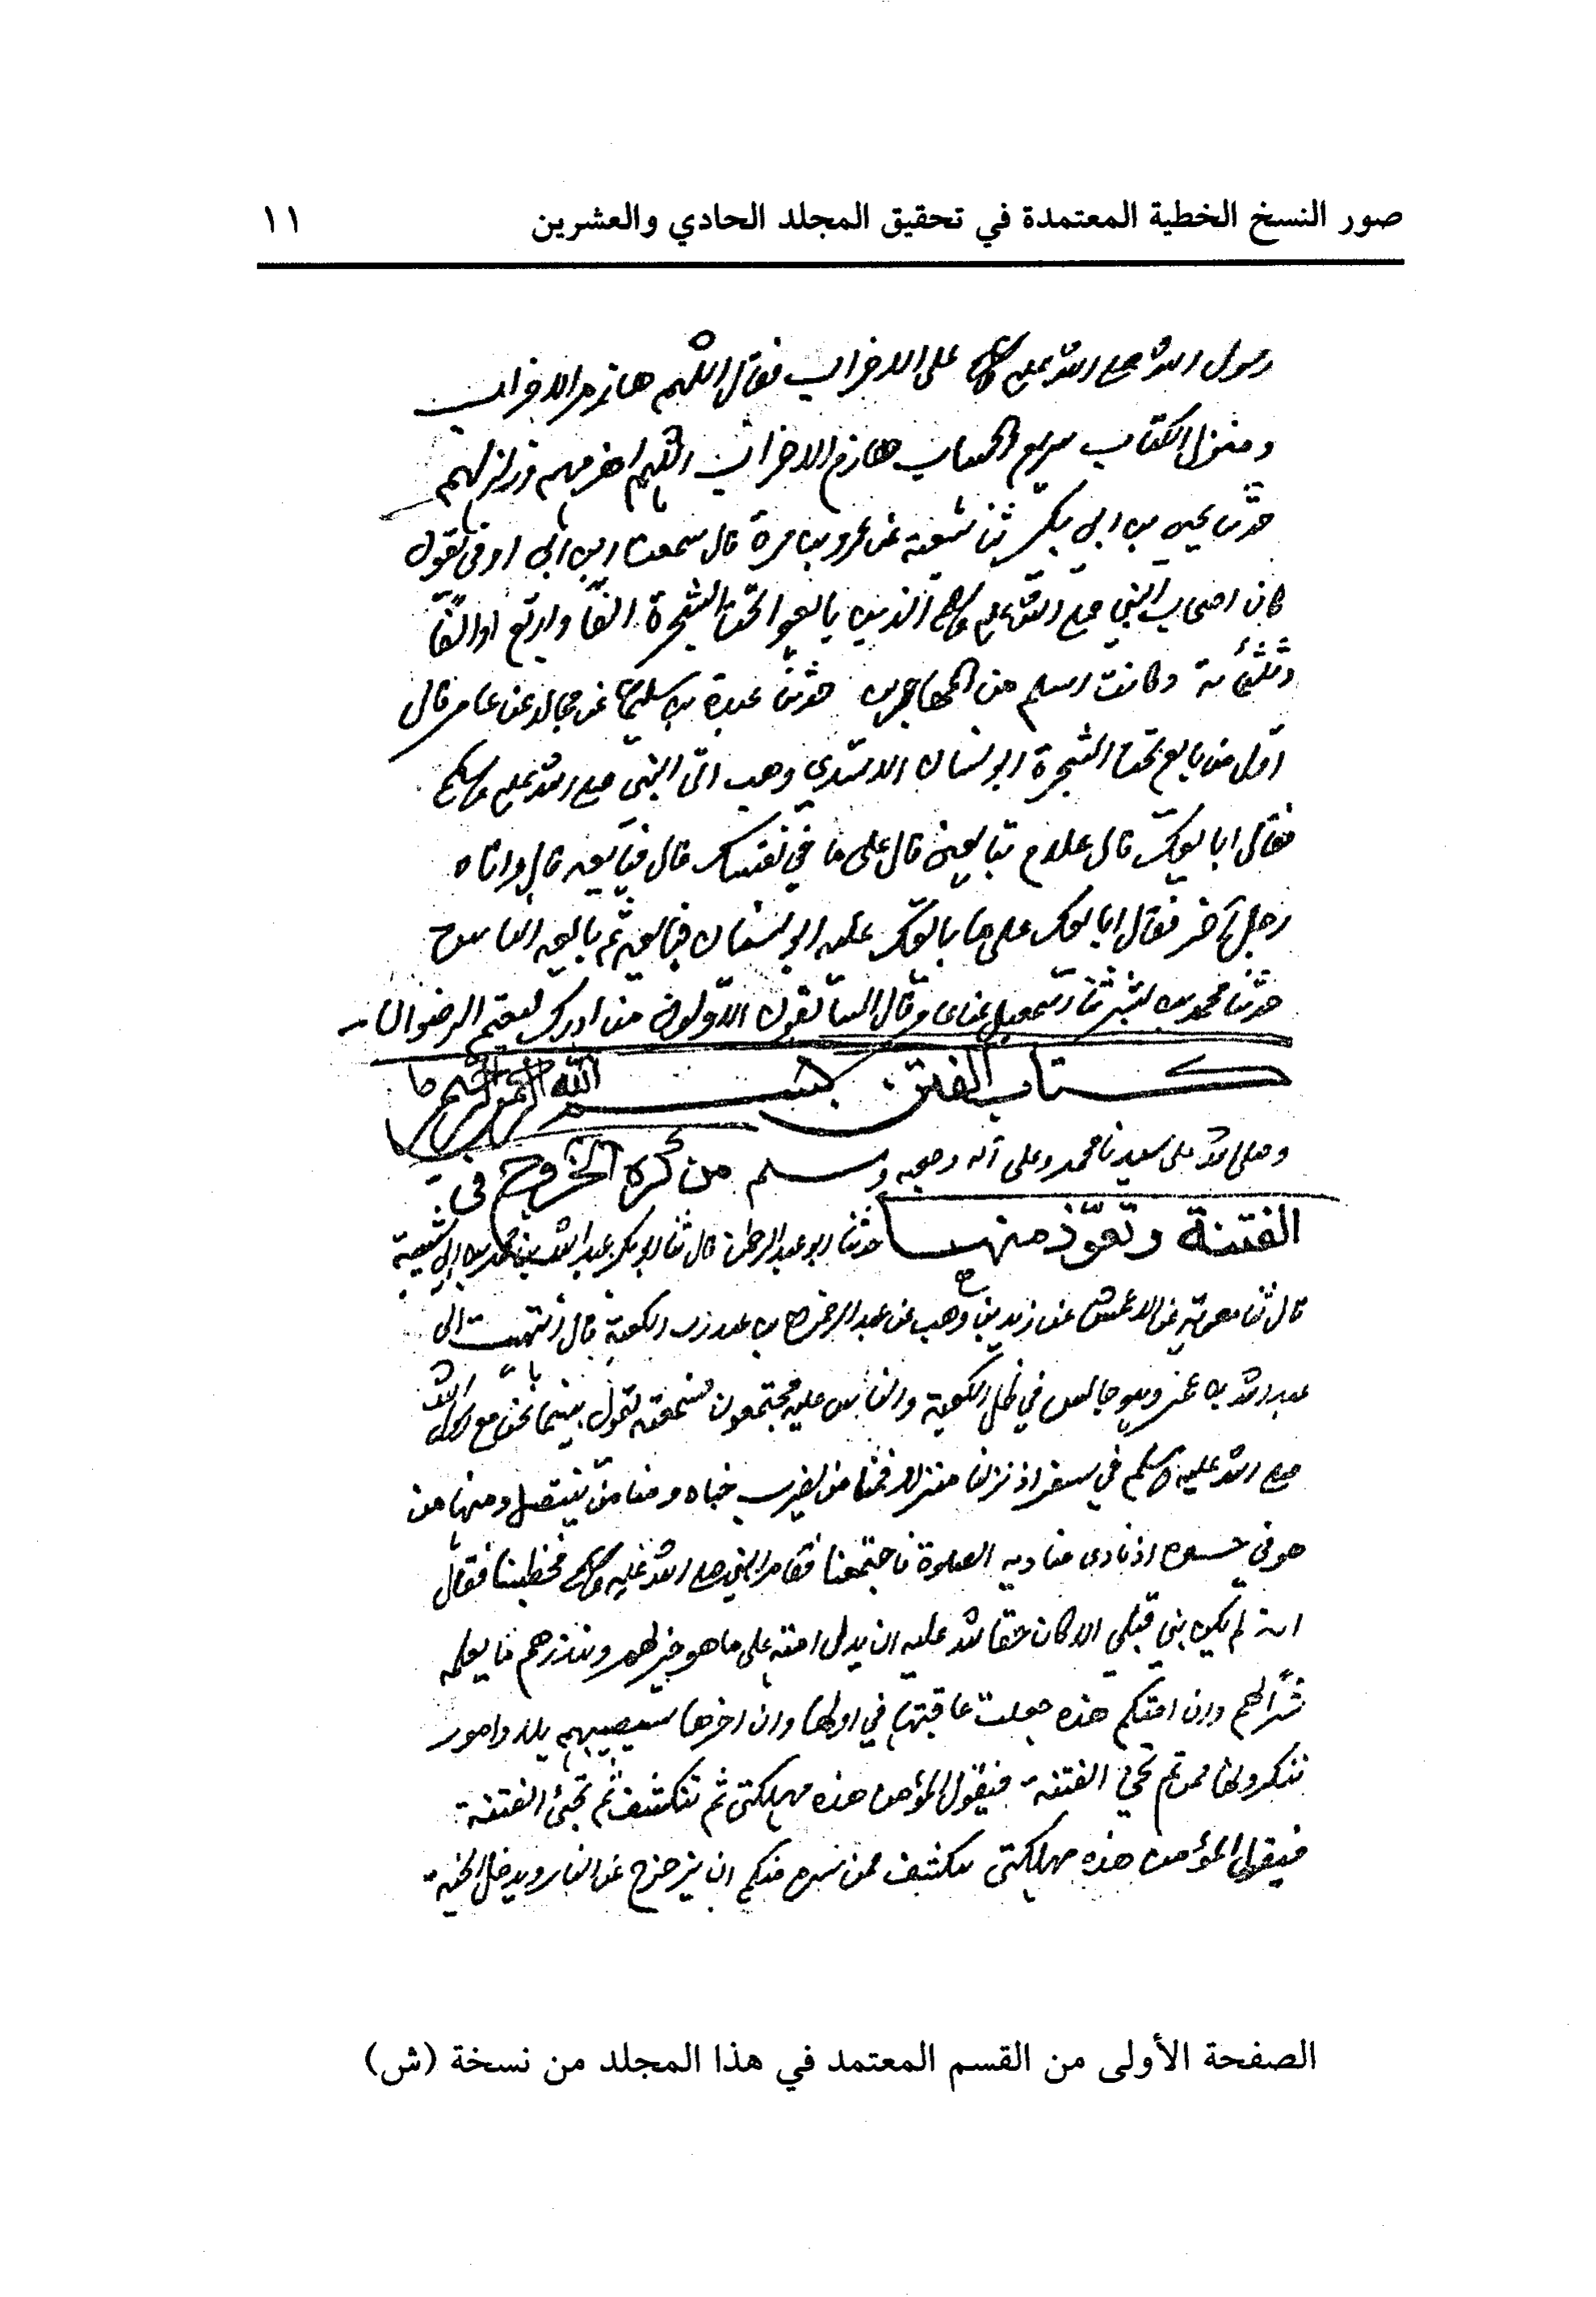 صور النسخ الخطية المعتمدة في تحقيق المجلد الحادي والعشرين ١١
رسول الله صلى الله عليه وسلم على الاحزاب فقال اللهم هازم الاحزاب
ومنزل الكتاب سريع الحساب هازم الاحزاب اللهم اهزمهم وزلزلهم
حدثنا يحيى بن ابي بكير ثنا شعبة عن عمرو بن مرة قال سمعت ابن ابي اوفى يقول
كان اصحاب النبي صلى الله عليه وسلم الذين بايعوا تحت الشجرة الفا واربع او الفا
وثلثمائة وكانت اسلم من المهاجرين حدثنا عبدة بن سليمان عن مجالد عن عامر قال
اول من بايع تحت الشجرة ابو سنان الاسدي وهب اتى النبي صلى الله عليه وسلم
فقال ابايعك قال علام تبايعني قال على ما في نفسك قال فبايعه قال واتاه
رجل آخر فقال ابايعك على ما بايعك عليه ابو سنان فبايعه ثم بايعه الناس
حدثنا محمد بن بشر ثنا اسمعيل عن عامر قال السابقون الاولون من ادرك بيعة الرضوان
كتاب الفتن بسم الله الرحمن الرحيم
وصلى الله على سيدنا محمد وعلى آله وصحبه وسلم من كره الخروج في
الفتنة وتعوّذ منها حدثنا ابو عبد الرحمن قال ثنا ابو بكر عبد الله بن محمد بن ابي شيبة
قال ثنا معوية عن الاعمش عن زيد بن وهب عن عبد الرحمن بن عبد رب الكعبة قال انتهيت الى
عبد الله بن عمرو وهو جالس في ظل الكعبة والناس عليه مجتمعون فسمعته يقول بينما نحن مع رسول الله
صلى الله عليه وسلم في سفر اذ نزلنا منزلا فمنا من يضرب خباه ومنا من ينتضل ومنا من
هو في جشره اذ نادى مناديه الصلوة فاجتمعنا فقام النبي صلى الله عليه وسلم فخطبنا فقال
انه لم يكن نبي قبلي الا كان حقا لله عليه ان يدل امته على ما هو خير لهم وينذرهم ما يعلمه
شرا لهم وان امتكم هذه جعلت عاقبتها في اولها وان اخرها سيصيبهم بلاء وامور
تنكرونها فمن ثم تجئ الفتنة فيقول المؤمن هذه مهلكتي ثم تنكشف ثم تجئ الفتنة
فيقول المؤمن هذه مهلكتي تنكشف فمن سره منكم ان يزحزح عن النار ويدخل الجنة
الصفحة الأولى من القسم المعتمد في هذا المجلد من نسخة (ش)